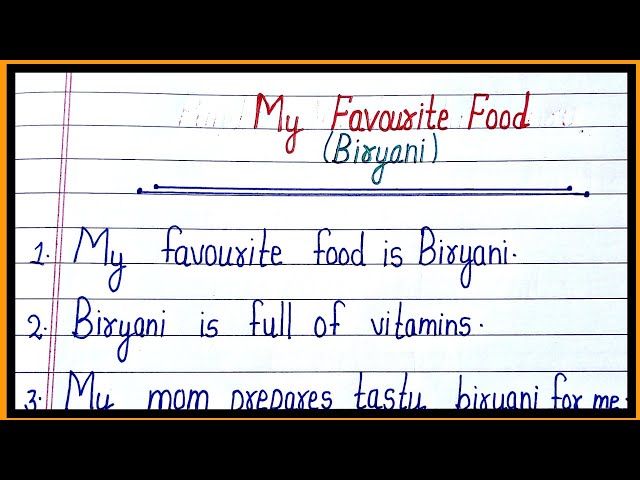 My Favourite Food
(Biryani)
1. My favourite food is Biryani.
2. Biryani is full of vitamins.
3. My mom prepares tasty biryani for me.